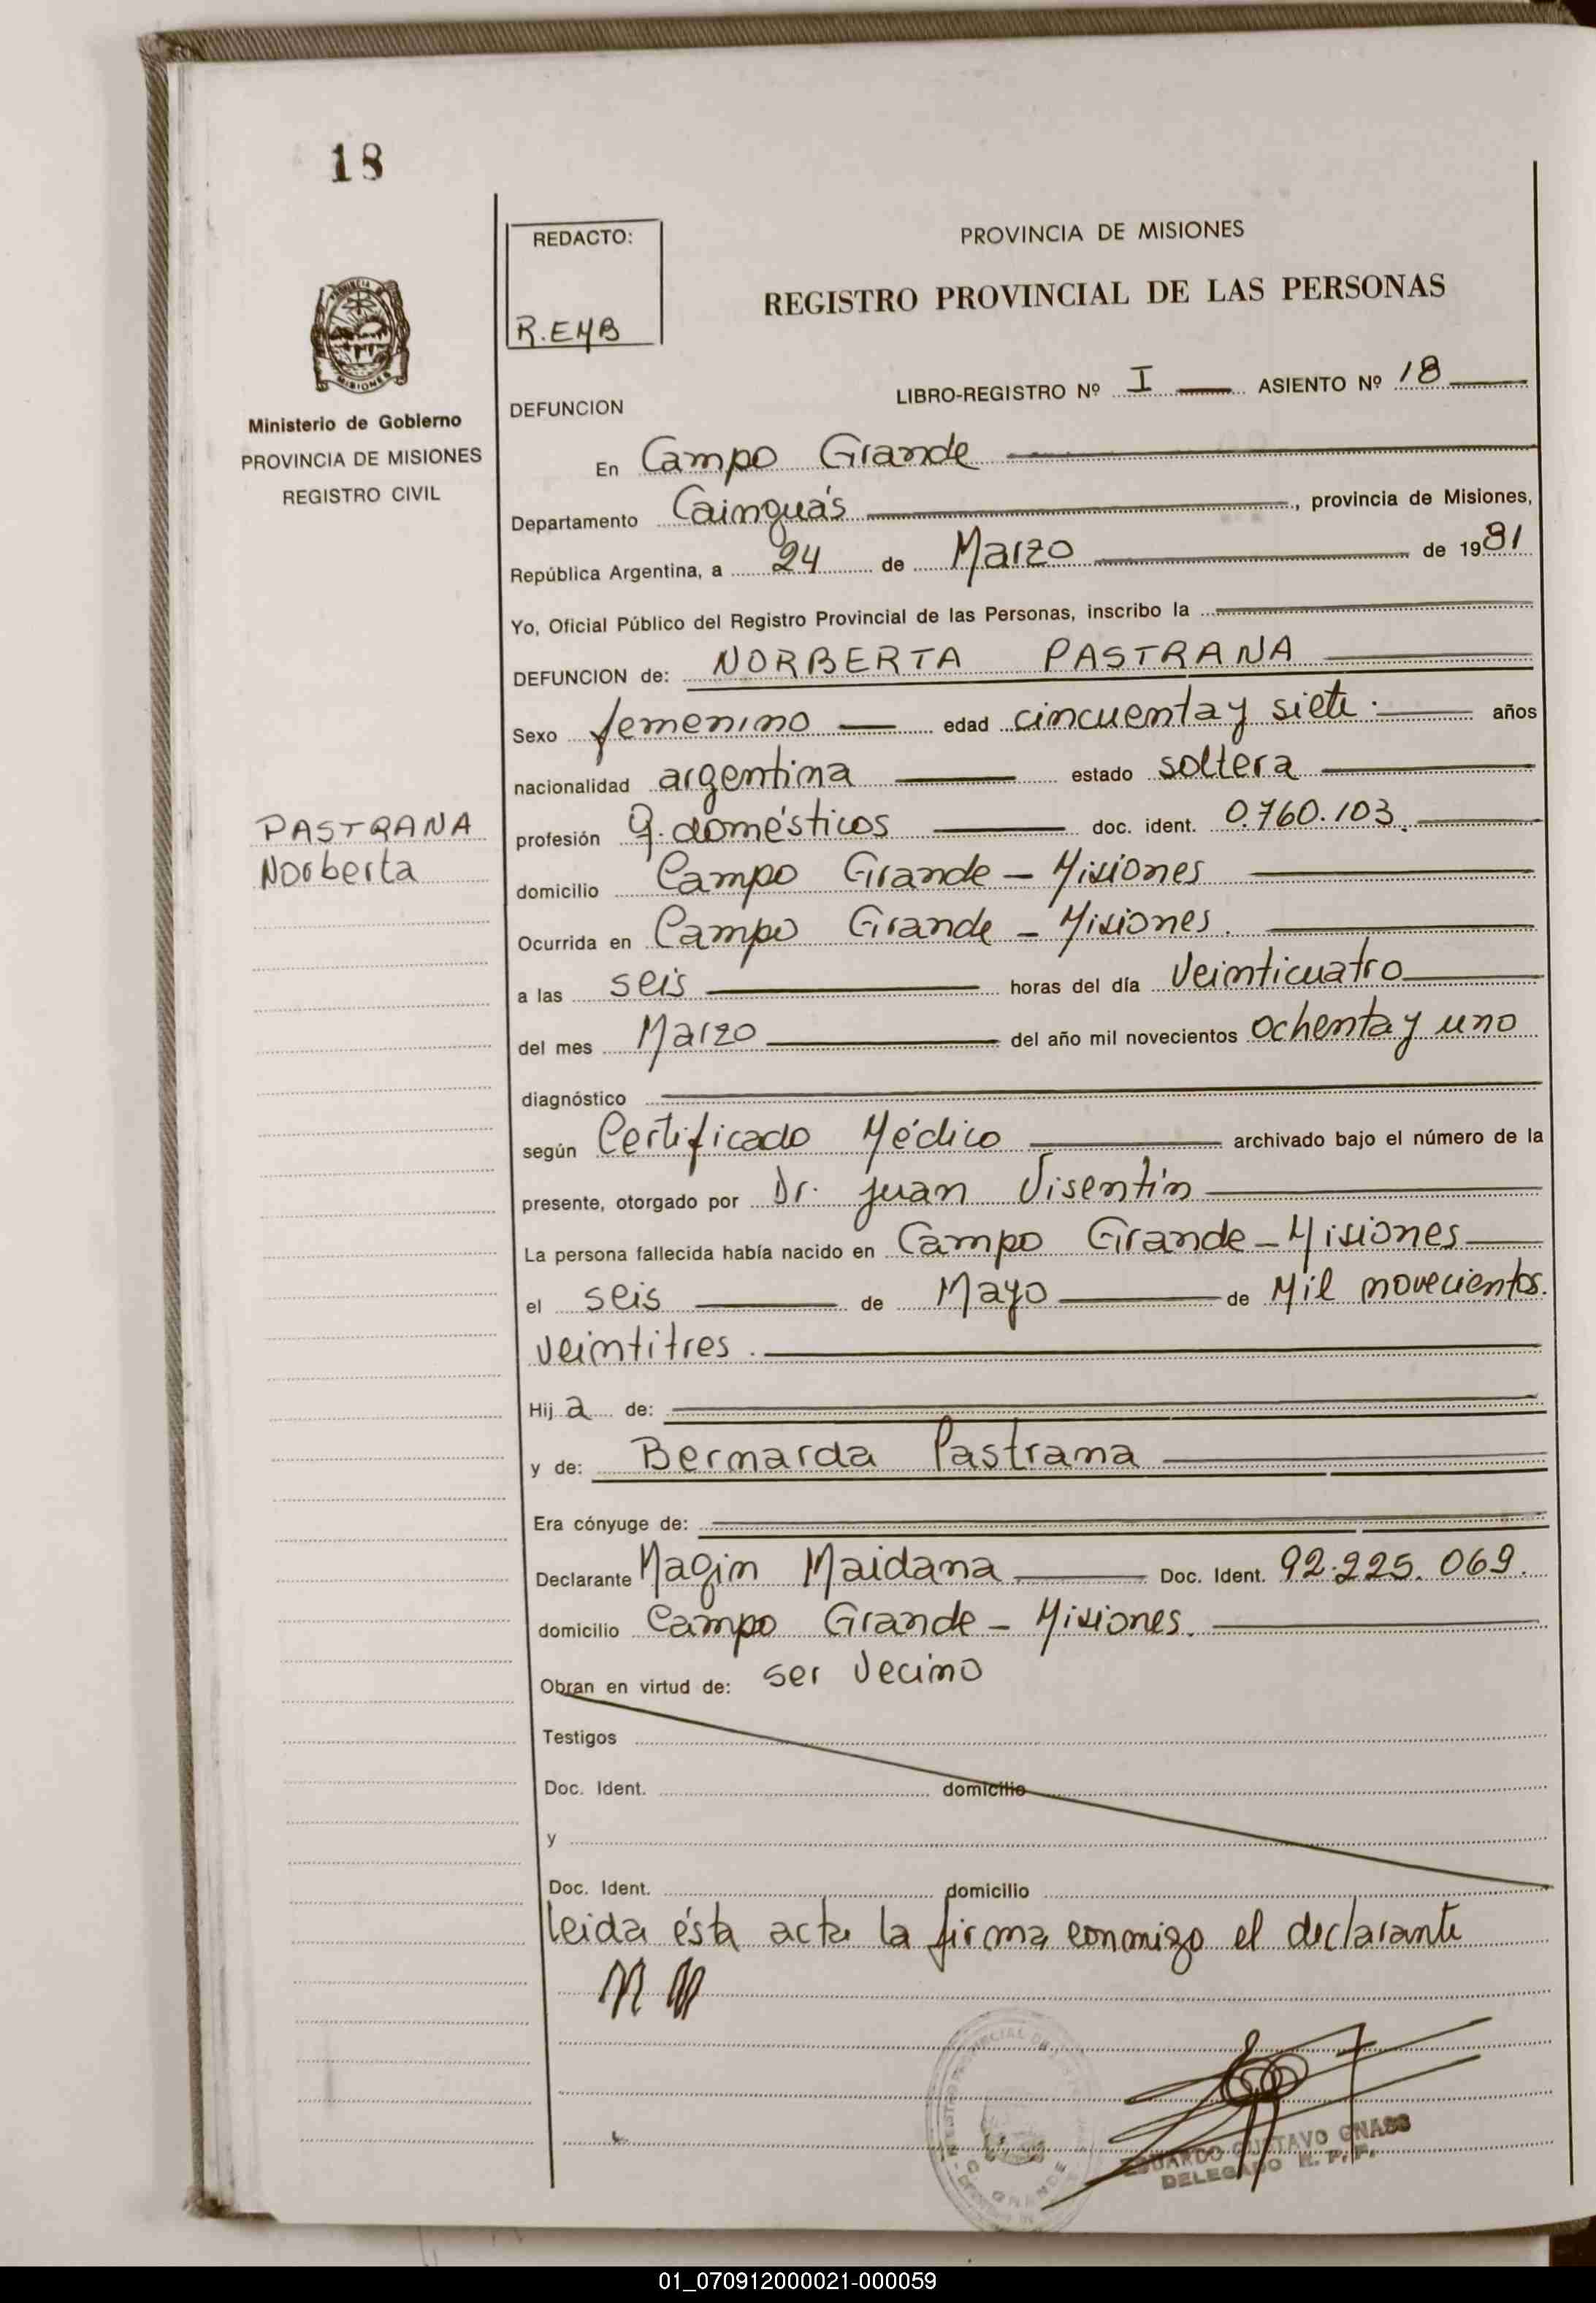 18
REDACTO:
R.EMB
PROVINCIA DE MISIONES
REGISTRO PROVINCIAL DE LAS PERSONAS
MISIONES
Ministerio de Gobierno
PROVINCIA DE MISIONES
REGISTRO CIVIL
LIBRO-REGISTRO Nº I ASIENTO Nº 18
DEFUNCION
En Campo Grande
Departamento Cainguás, provincia de Misiones,
República Argentina, a 24 de Marzo de 1981
Yo, Oficial Público del Registro Provincial de las Personas, inscribo la
DEFUNCION de: NORBERTA PASTRANA
Sexo femenino edad cincuenta y siete. años
nacionalidad argentina estado soltera
PASTRANA
Norberta
profesión q. domésticos doc. ident. 0.760.103.
domicilio Campo Grande - Misiones
Ocurrida en Campo Grande - Misiones.
a las seis horas del día veinticuatro
del mes Marzo del año mil novecientos ochenta y uno
diagnóstico
según Certificado Médico archivado bajo el número de la
presente, otorgado por Dr. Juan Visentín
La persona fallecida había nacido en Campo Grande - Misiones
el seis de Mayo de Mil novecientos.
veintitres.
Hij a de:
y de: Bernarda Pastrana
Era cónyuge de:
Declarante Magin Maidana Doc. Ident. 92.225.069.
domicilio Campo Grande - Misiones.
Obran en virtud de: ser vecino
Testigos
Doc. Ident. domicilio
y
Doc. Ident. domicilio
leida ésta acta la firma conmigo el declarante
EDUARDO GUSTAVO GNASS
DELEGADO R. P. P.
GRANDE
01_070912000021-000059